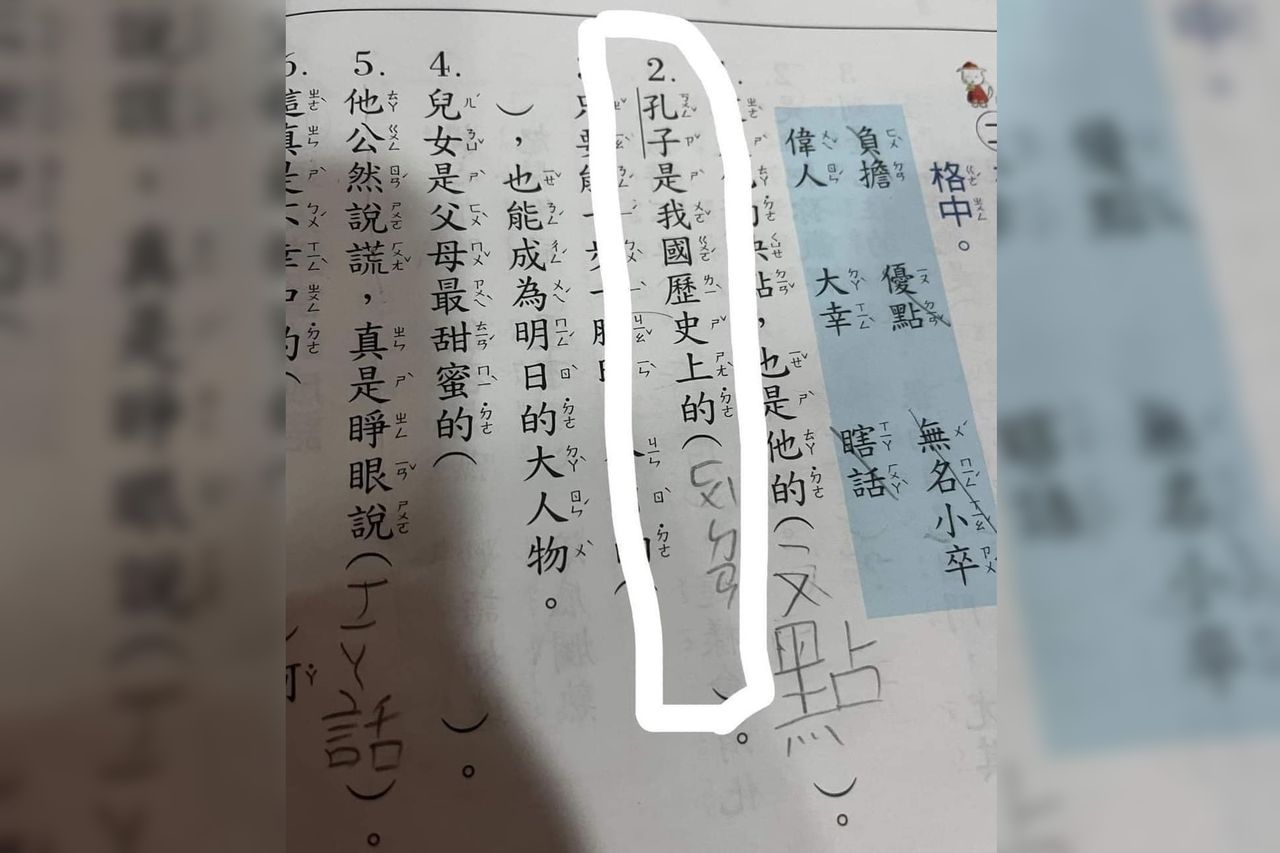 格中。
負擔 優點 無名小卒
偉人 大幸 瞎話
點，也是他的(ㄧㄡ點)。
2. 孔子是我國歷史上的(ㄈㄨˋㄉㄢ)。
3.
)，也能成為明日的大人物。
4. 兒女是父母最甜蜜的( )。
5. 他公然說謊，真是睜眼說(ㄒㄧㄚ話)。
6. 這真是不幸中的(